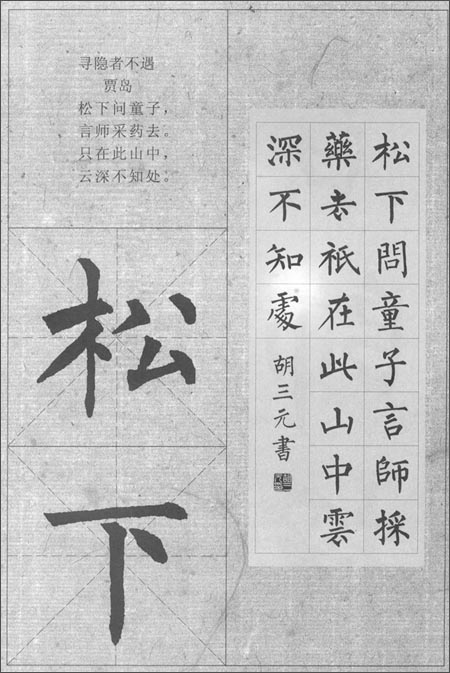 寻隐者不遇
贾岛
松下问童子，
言师采药去。
只在此山中，
云深不知处。
松
下
松下問童子言師採
藥去祇在此山中雲
深不知處
胡三元書